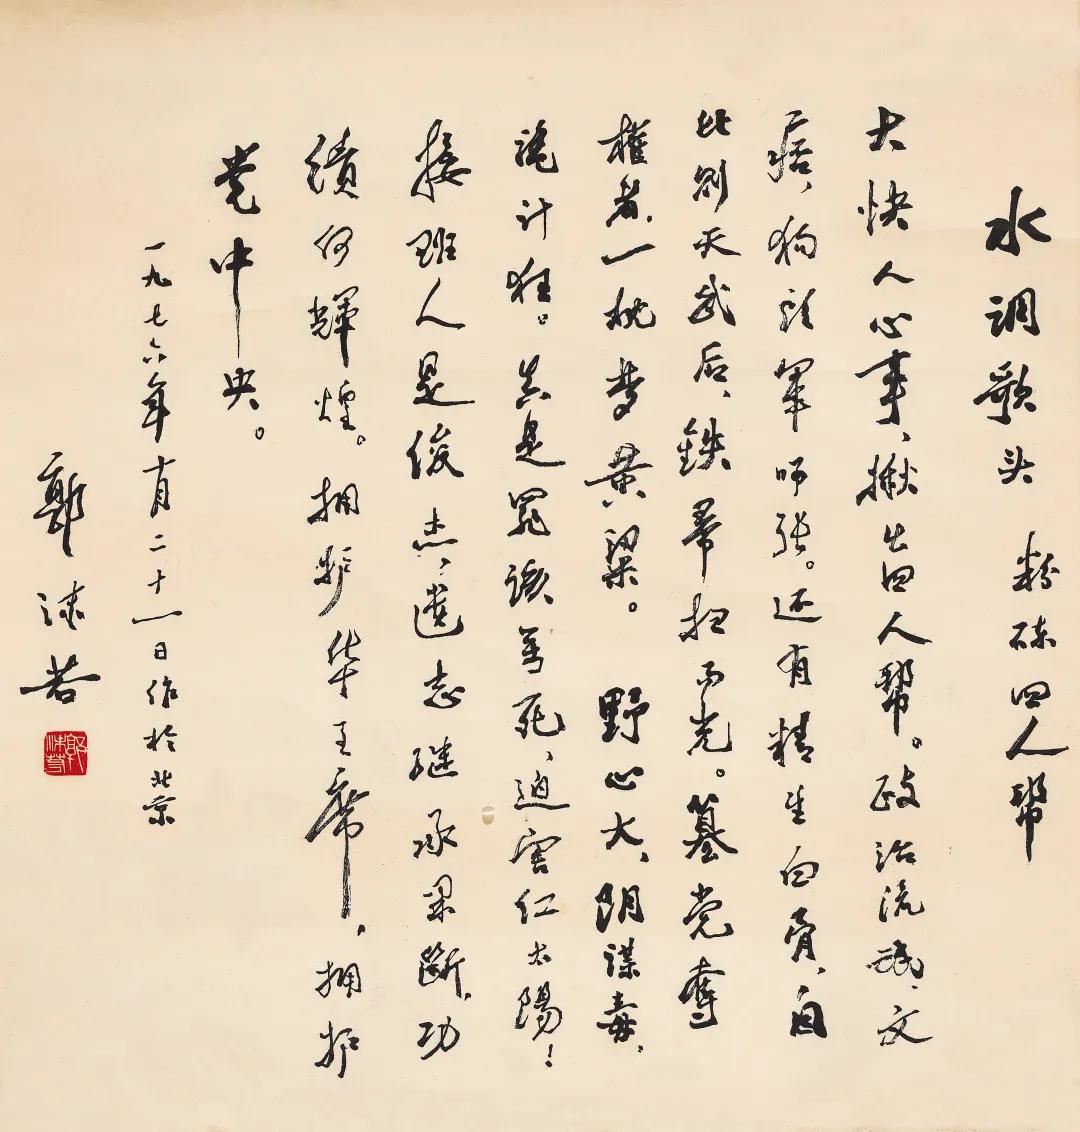 水调歌头 粉碎四人帮
大快人心事、揪出四人帮。政治流氓、文
痞、狗头军师张。还有精生白骨、自
比则天武后、铁帚扫而光。篡党夺
權者、一枕梦黄粱。 野心大、阴谋毒、
诡计狂。真是罪该万死、迫害红太陽！
接班人是俊杰、遗志继承果断、功
绩何輝煌。拥护华主席，拥护
党中央。
一九七六年十月二十一日作於北京
郭沫若
郭沫若